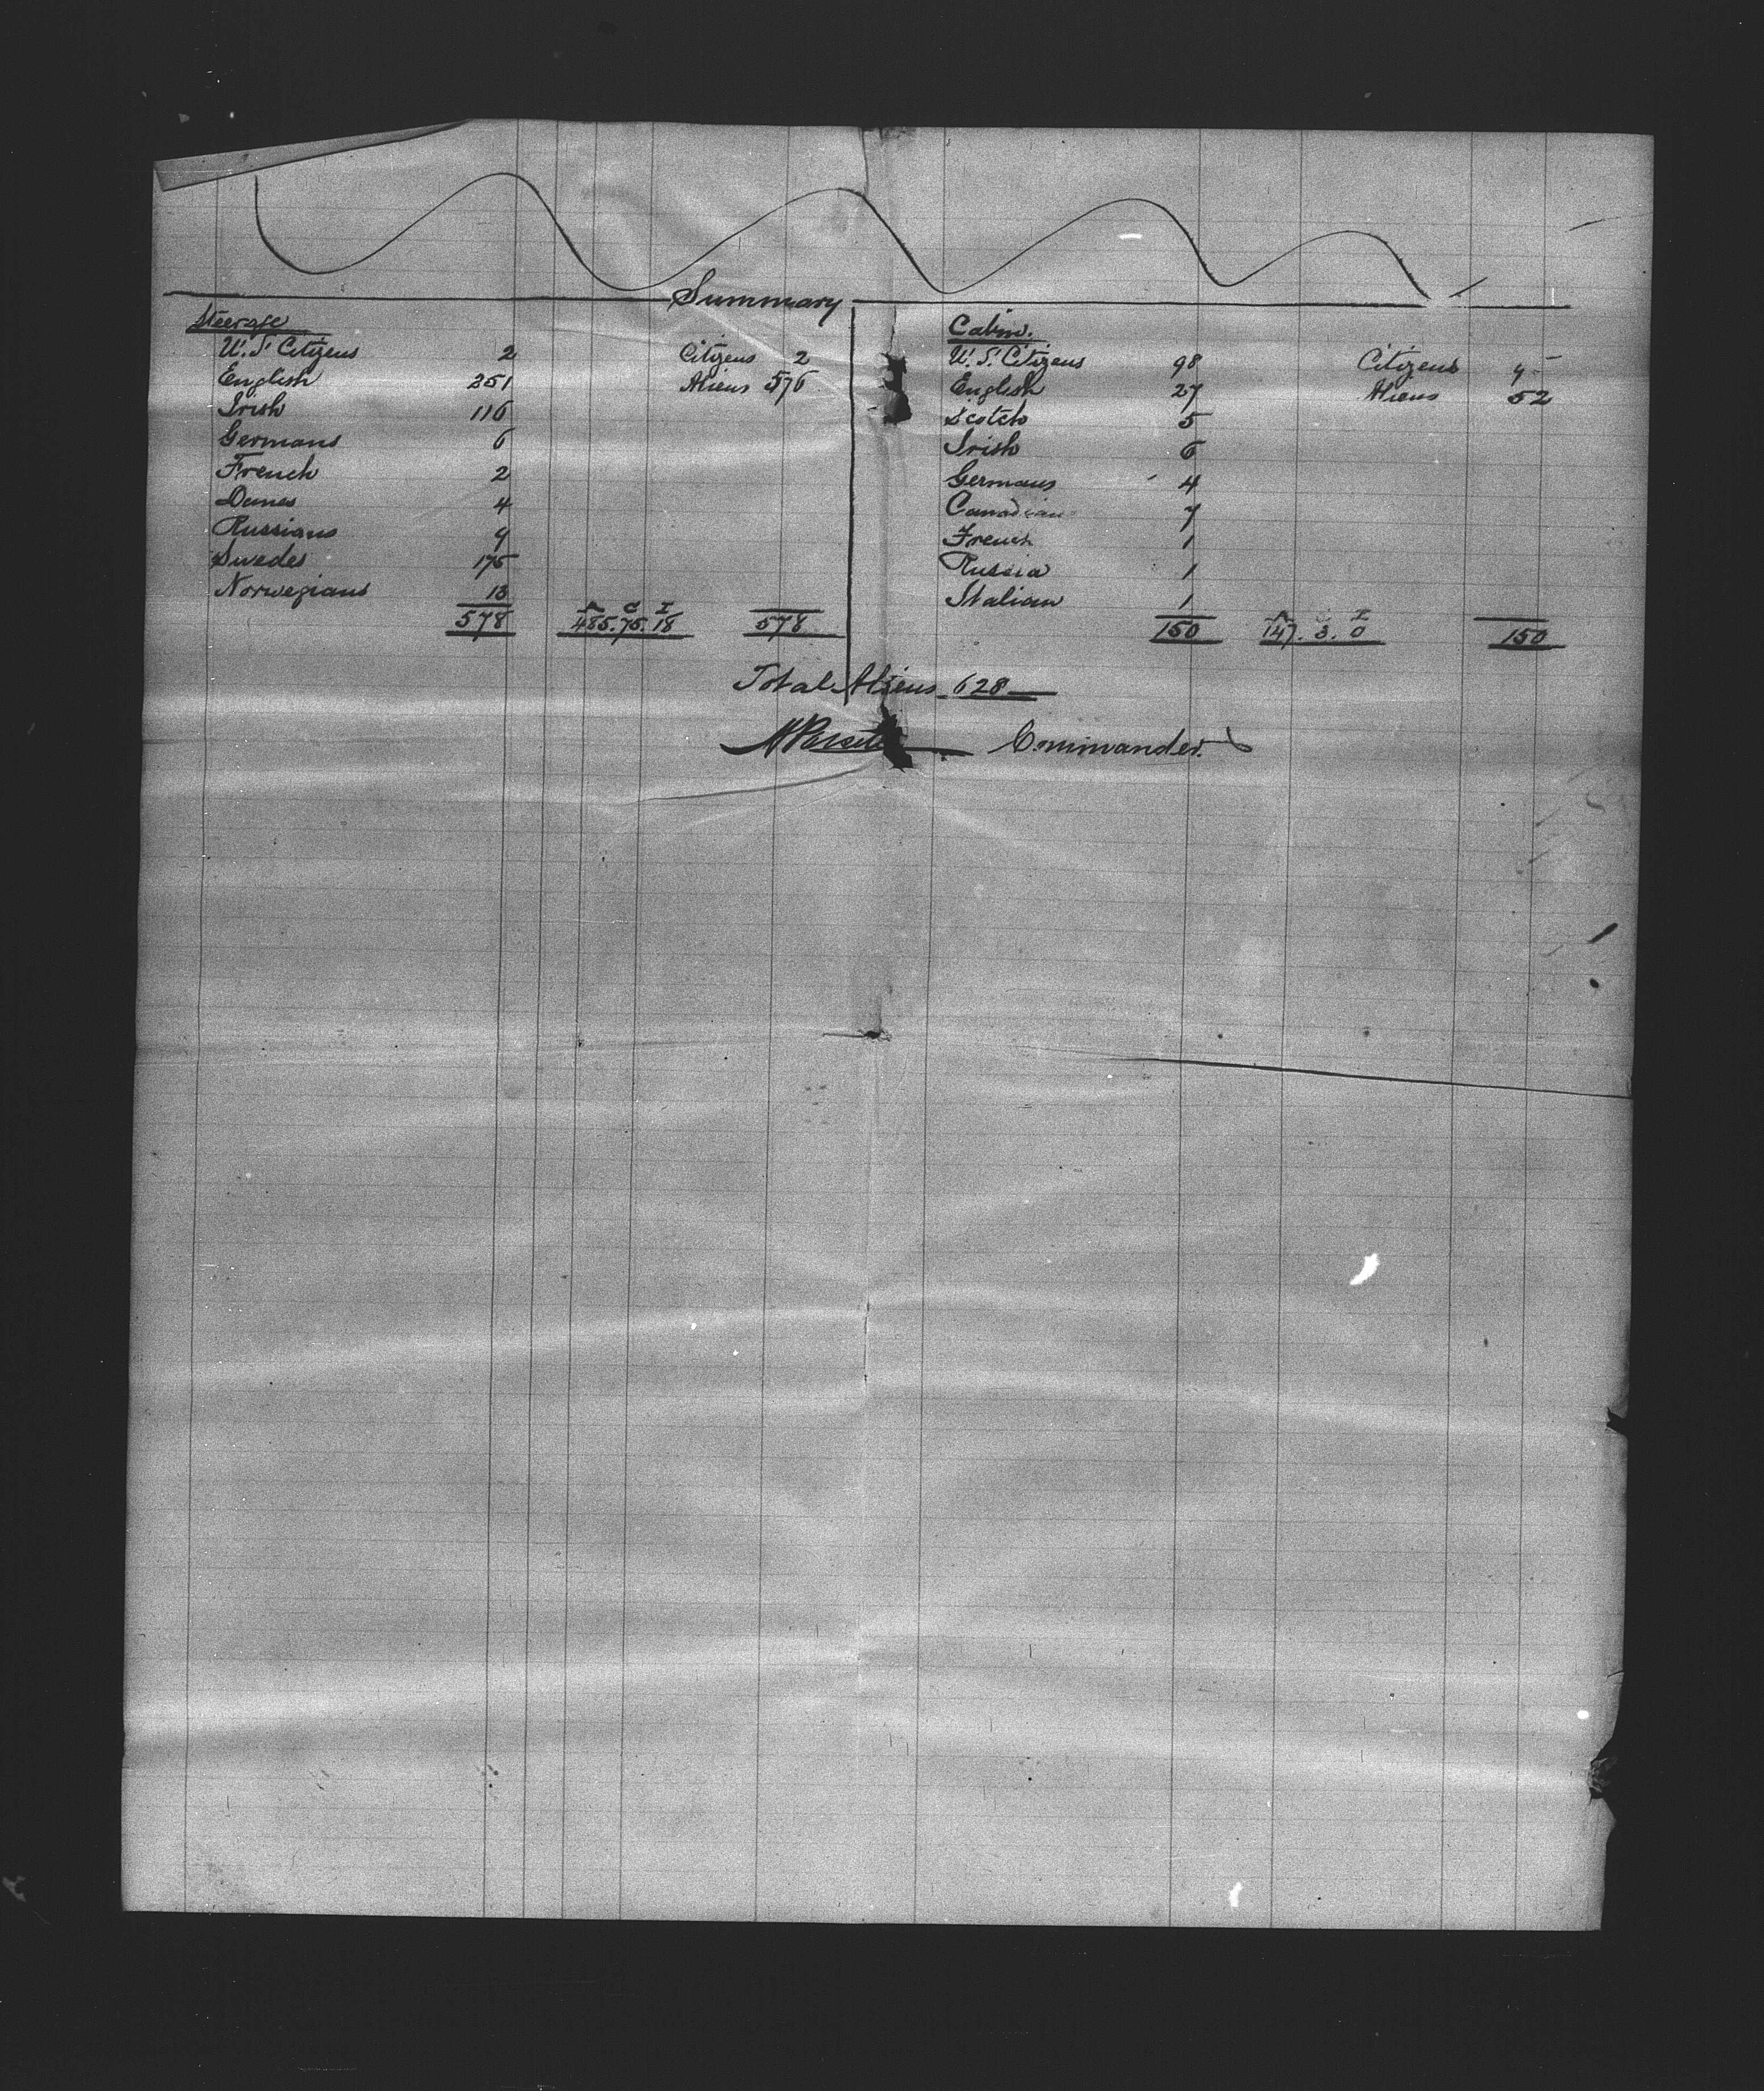 Summary
Steerage
U.S. Citizens 2 Citizens 2
English 251 Aliens 576
Irish 116
Germans 6
French 2
Danes 4
Russians 9
Swedes 175
Norwegians 13
A C I
578 485. 75. 18 578
Cabin.
U.S. Citizens 98 Citizens 9
English 27 Aliens 52
Scotch 5
Irish 6
Germans 4
Canadian 7
French 1
Russia 1
Italian 1
A C I
150 147. 3. 0 150
Total Aliens 628
Commander